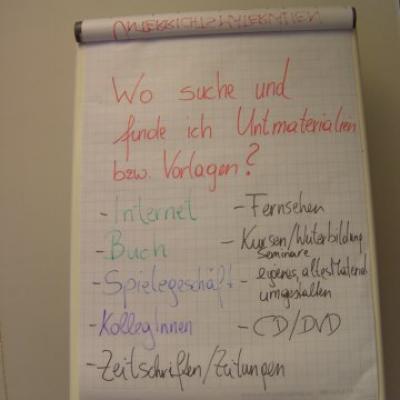 UNTERRICHTSMATERIALIEN
Wo suche und
finde ich Untmaterialien
bzw. Vorlagen?
- Internet
- Buch
- Spielegeschäft
- KollegInnen
- Zeitschriften/Zeitungen
- Fernsehen
- Kursen/Weiterbildung
Seminare
- eigenes, altes Material
umgestalten
- CD/DVD